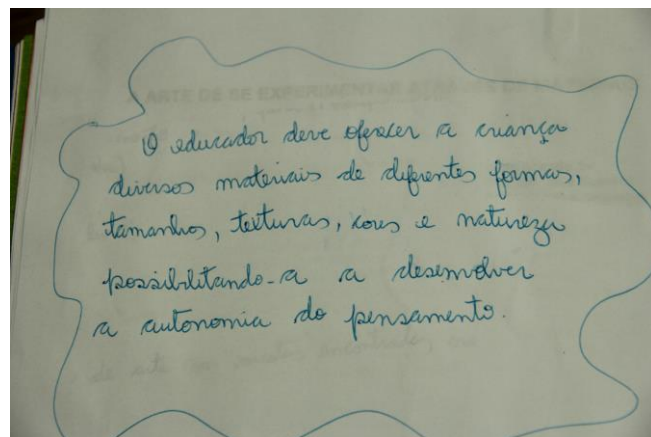 O educador deve oferecer a criança
diversos materiais de diferentes formas,
tamanhos, texturas, cores e natureza
possibilitando-a a desenvolver
a autonomia do pensamento.